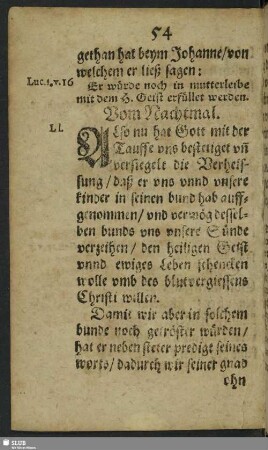 54
gethan hat beym Johanne/von
welchem er ließ sagen:
Luc. 1. v. 16
Er würde noch in mutterleibe
mit dem H. Geist erfüllet werden.
Vom Nachtmal.
LI.
Also nu hat Gott mit der
Tauffe vns bezeuget vñ
versiegelt die Verheis-
sung/daß er vns vnnd vnsere
kinder in seinen bund hab auff-
genommen/vnd vermög dessel-
ben bunds vns vnsere Sünde
verzeihen/den heiligen Geist
vnnd ewiges Leben schencken
wolle vmb des blutvergiessens
Christi willen.
Damit wir aber in solchem
bunde noch getröster würden/
hat er neben steter predigt seines
worts/dadurch wir seiner gnad
ohn
SLUB